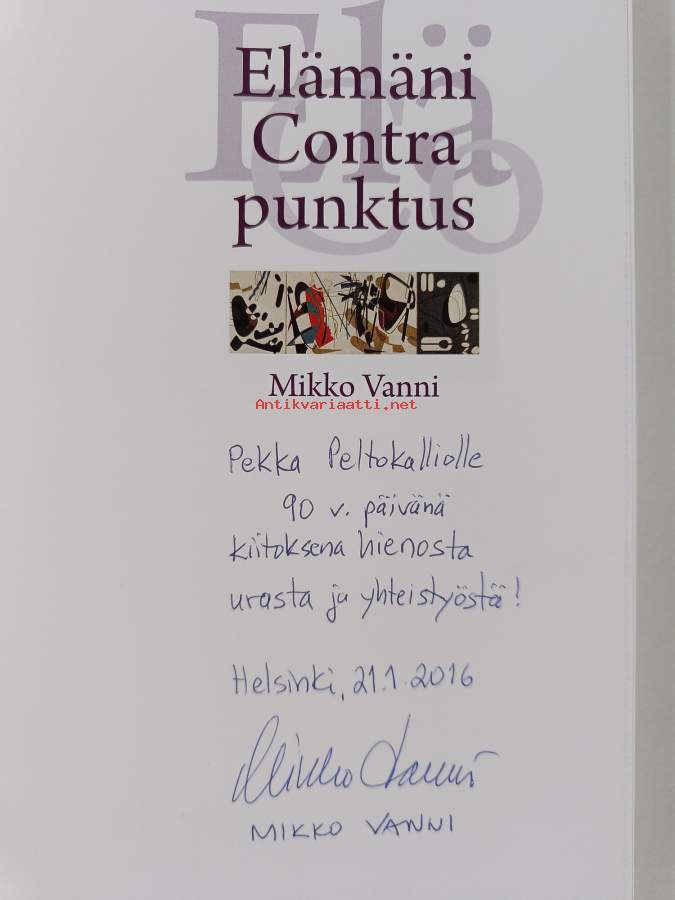 Elä
Co
Elämäni
Contra
punktus
Mikko Vanni
Antikvariaatti.net
Pekka Peltokalliolle
90 v. päivänä
kiitoksena hienosta
urasta ja yhteistyöstä!
Helsinki, 21.1.2016
Mikko Vanni
MIKKO VANNI